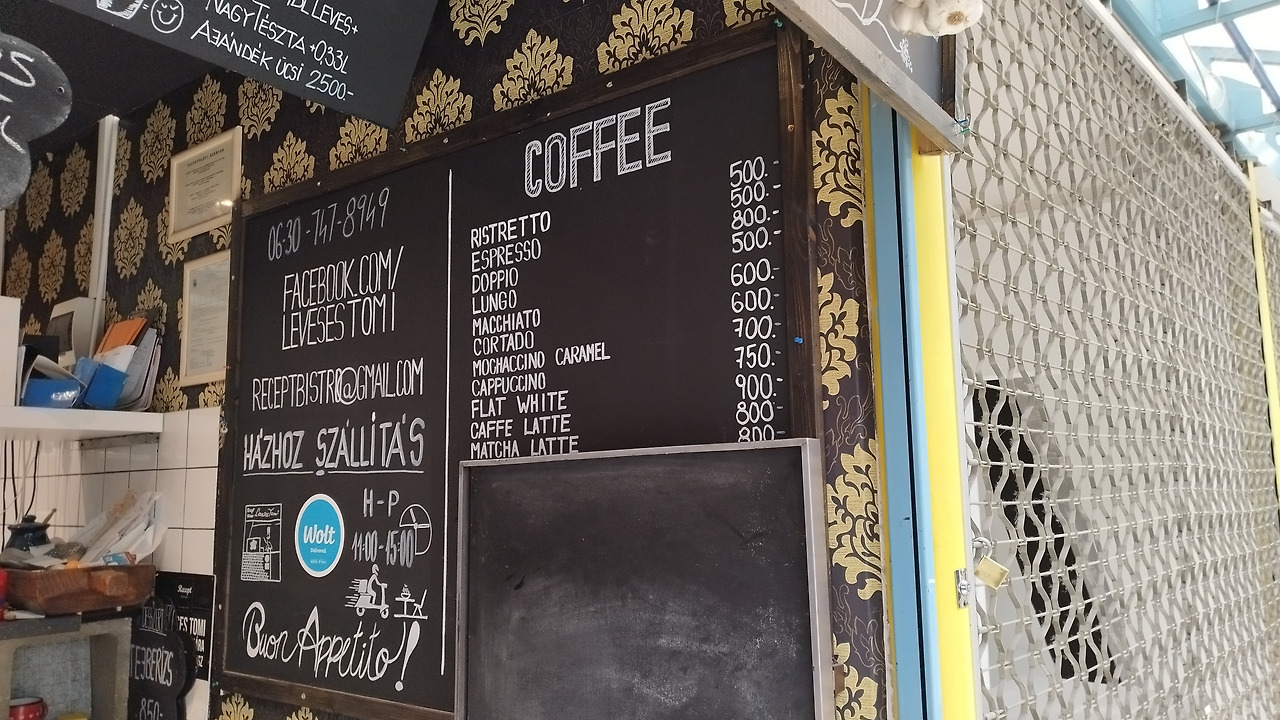 LEVES+
NAGY TÉSZTA +0,33L
AJÁNDÉK ÜCSI 2500.-
06·30-747-8949
FACEBOOK.COM/
LEVESESTOMI
RECEPTBISTRO@GMAIL.COM
HÁZHOZ SZÁLLÍTÁS
Wolt
H-P
11:00-15:00
Buon Appetito!
COFFEE
RISTRETTO 500.-
ESPRESSO 500.-
DOPPIO 800.-
LUNGO 500.-
MACCHIATO 600.-
CORTADO 600.-
MOCHACCINO CARAMEL 700.-
CAPPUCCINO 750.-
FLAT WHITE 900.-
CAFFE LATTE 800-
MATCHA LATTE 800-
ES TOMI
850.-